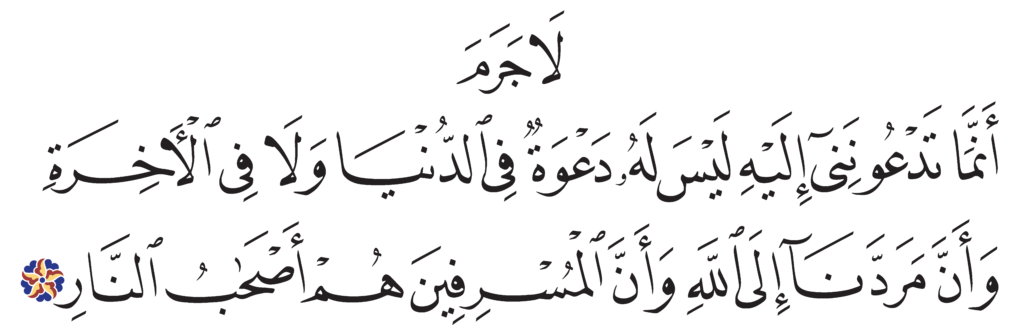 لَا جَرَمَ
أَنَّمَا تَدْعُونَنِىٓ إِلَيْهِ لَيْسَ لَهُۥ دَعْوَةٌ فِى ٱلدُّنْيَا وَلَا فِى ٱلْأَخِرَةِ
وَأَنَّ مَرَدَّنَآ إِلَى ٱللَّهِ وَأَنَّ ٱلْمُسْرِفِينَ هُمْ أَصْحَٰبُ ٱلنَّارِ